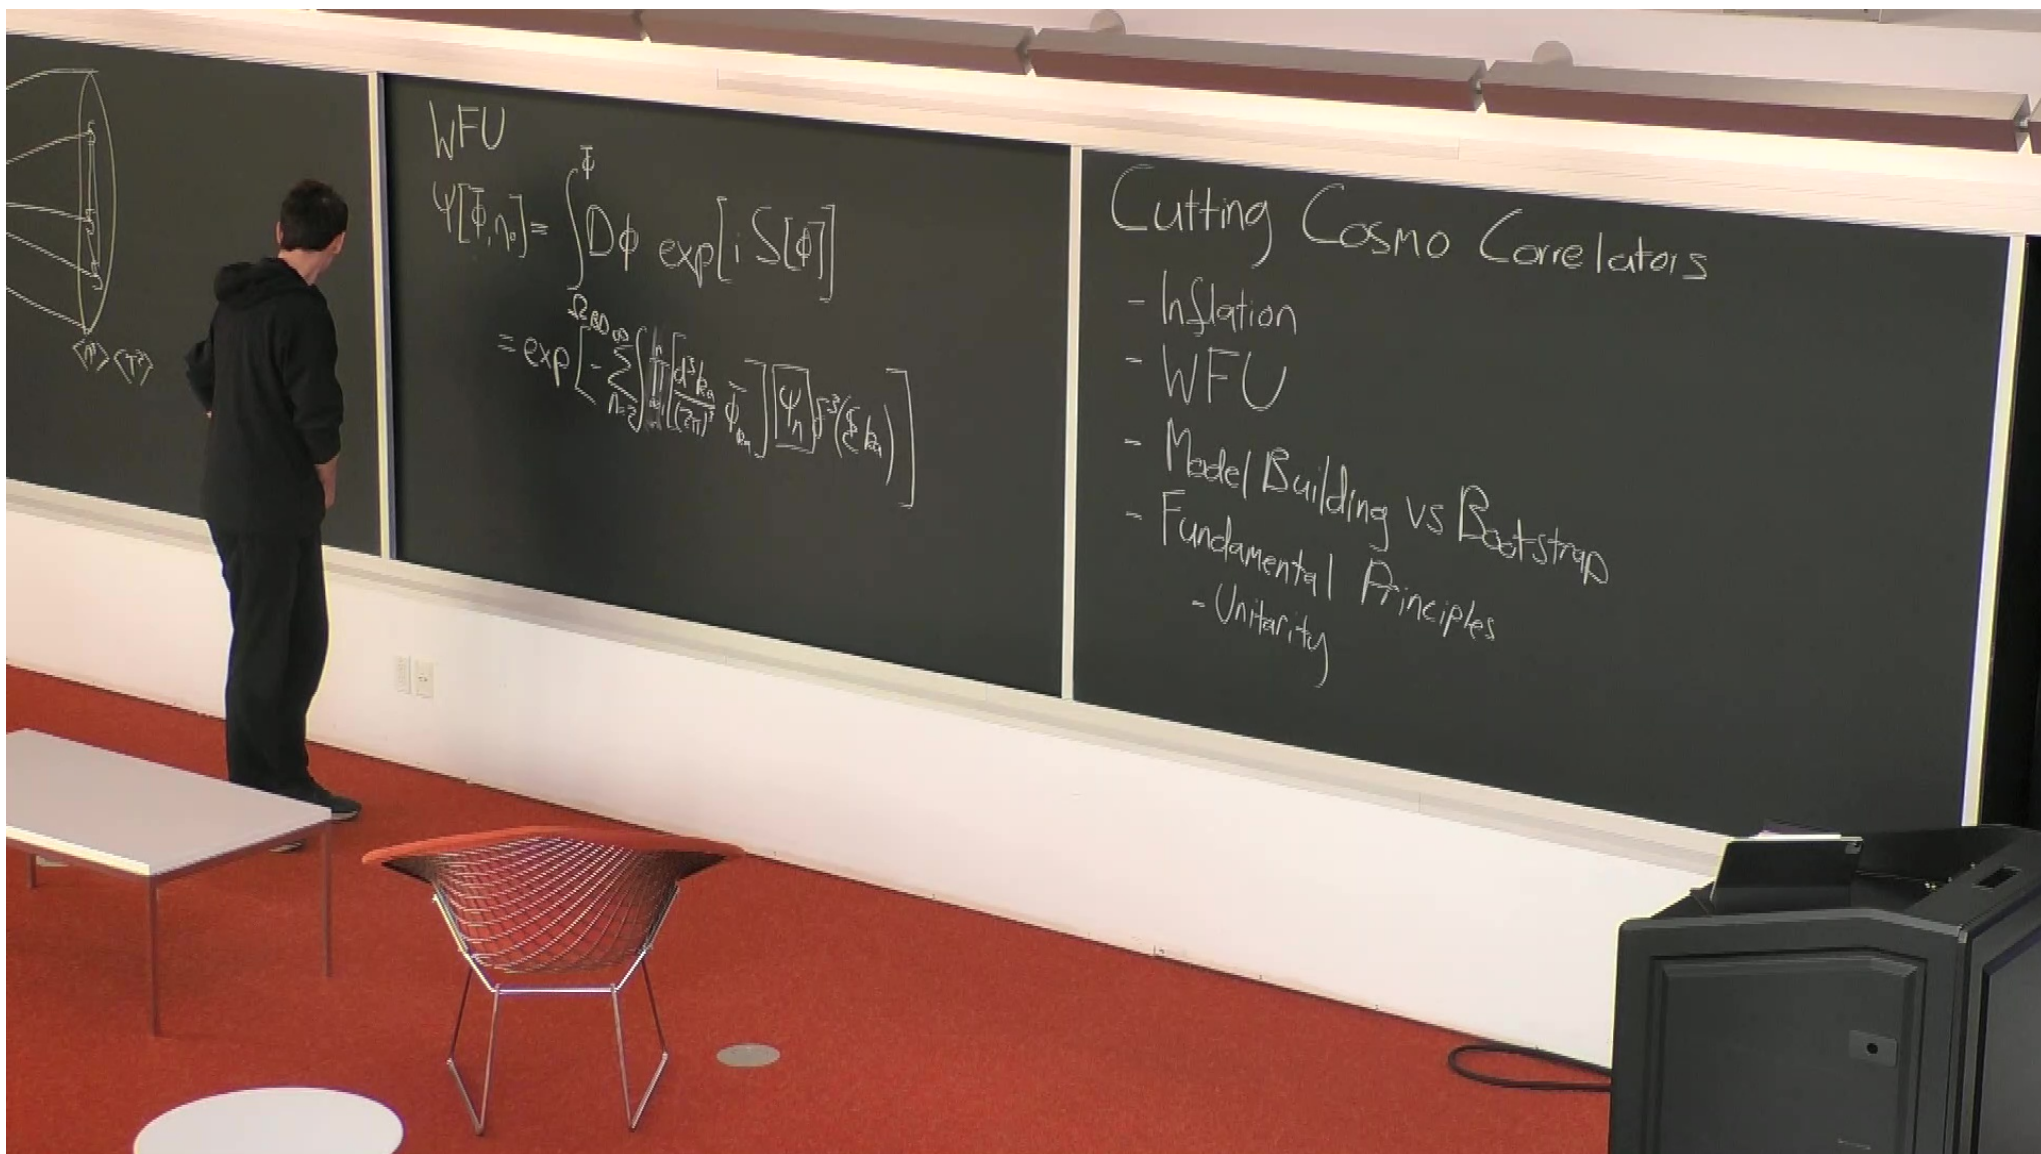 WFU
Ψ[Φ̄, η₀] = ∫_{Ω_{BD}}^{Φ̄} Dϕ exp[i S[ϕ]]
= exp[- ∑_{n=2}^{∞} ∫ ∏^{n} [d³k_a/(2π)³ Φ̄_{k_a}] ψ_n δ³(∑ k_a)]
Cutting Cosmo Correlators
- Inflation
- WFU
- Model Building vs Bootstrap
- Fundamental Principles
- Unitarity